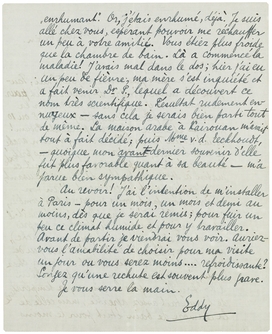 enrhumant! Or, j'étais enrhumé, déjà. Je suis
allé chez vous, espérant pouvoir me réchauffer
un peu à votre amitié. Vous étiez plus froide
que ta chambre de bain. Là a commencé la
maladie! J'avais mal dans le dos; hier j'ai eu
un peu de fièvre; ma mère s'est inquiétée et
a fait venir Dr. P., lequel a découvert ce
nom très scientifique. Résultat rudement en-
nuyeux — sans cela je serais bien parti tout
de même. La maison arabe à Kairouan m'évient
tout à fait décidé; puis Mme v. d. Eeckhoudt,
— quoique mon avant dernier souvenir d'elle
fut plus favorable quant à sa beauté — m'a
parue bien sympathique.
Au revoir! J'ai l'intention de m'installer
à Paris — pour un mois, un mois et demi au
moins, dès que je serai remis; pour fuir un
peu ce climat humide et pour y travailler.
Avant de partir je viendrai vous voir. Auriez-
vous l'amabilité de choisir pour ma visite
un jour où vous serez moins.... refroidissante?
Songez qu'une rechute est souvent plus grave.
Je vous serre la main.
Eddy